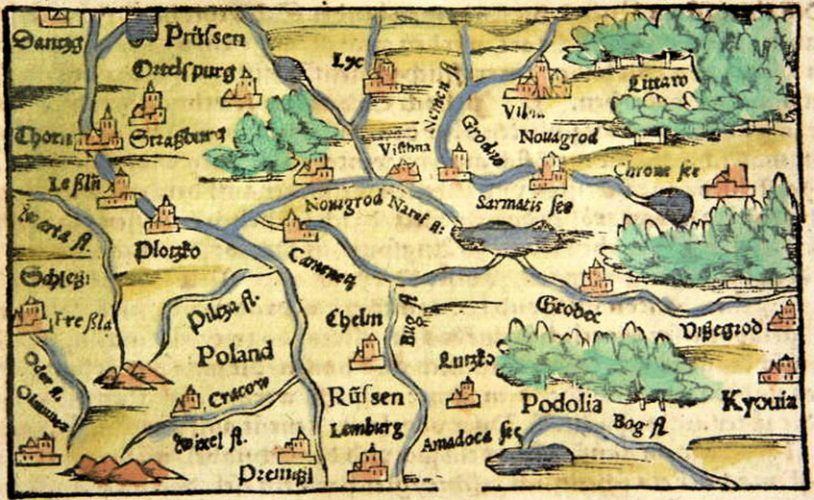 Dantzg
Prüssen
Ortelspurg
Lyc
Nemen fl
Vilna
Littaw
Thorn
Straßburg
Grodno
Nouagrod
Visthna
Chrone see
Leßlin
Nouigrod
Naref fl:
Sarmatis see
Warta fl.
Plotzko
Schlesi
Pilcza fl.
Chelm
Bug fl
Grodec
Vißegrod
Poland
Lutzko
Oder fl.
Cracow
Rüssen
Podolia
Kyouia
Olmuntz
Lemburg
Amadoca see
Bog fl
Wixel fl.
Premißl